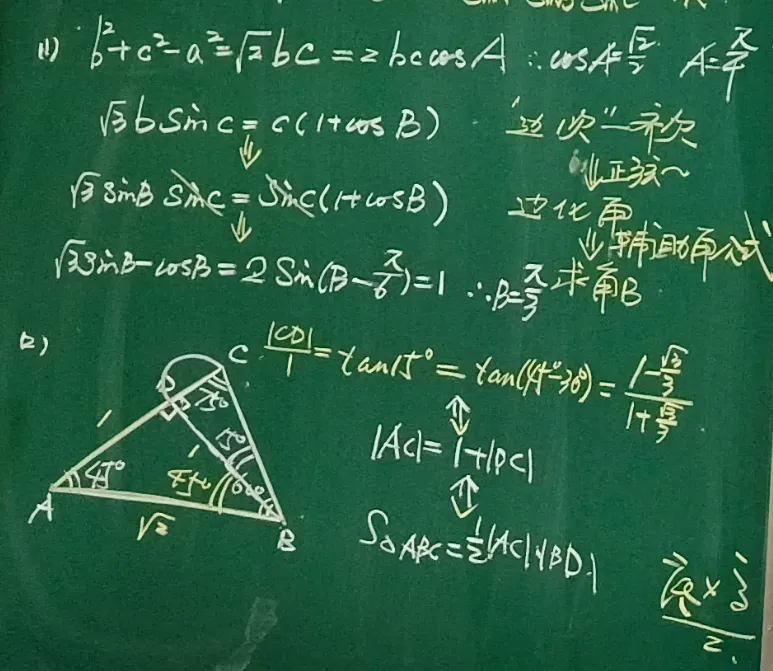 (1) b²+c²-a²=√2bc=2bccosA ∴cosA=√2/2 A=π/4
√3bSinC=c(1+cosB) "边次"一次
⇓ ⇓正弦~
√3SinBSinC=SinC(1+cosB) 边化角
⇓ ⇓辅助角公式
√3SinB-cosB=2Sin(B-π/6)=1 ∴B=π/3 求角B
(2) |CD|/1=tan15°=tan(45°-30°)=(1-√3/3)/(1+√3/3)
C
D
75°
1
⇕
15°
1
|AC|=1+|DC|
45°
45°
60°
⇕
A
√2
B
S△ABC=½|AC|·|BD|
2